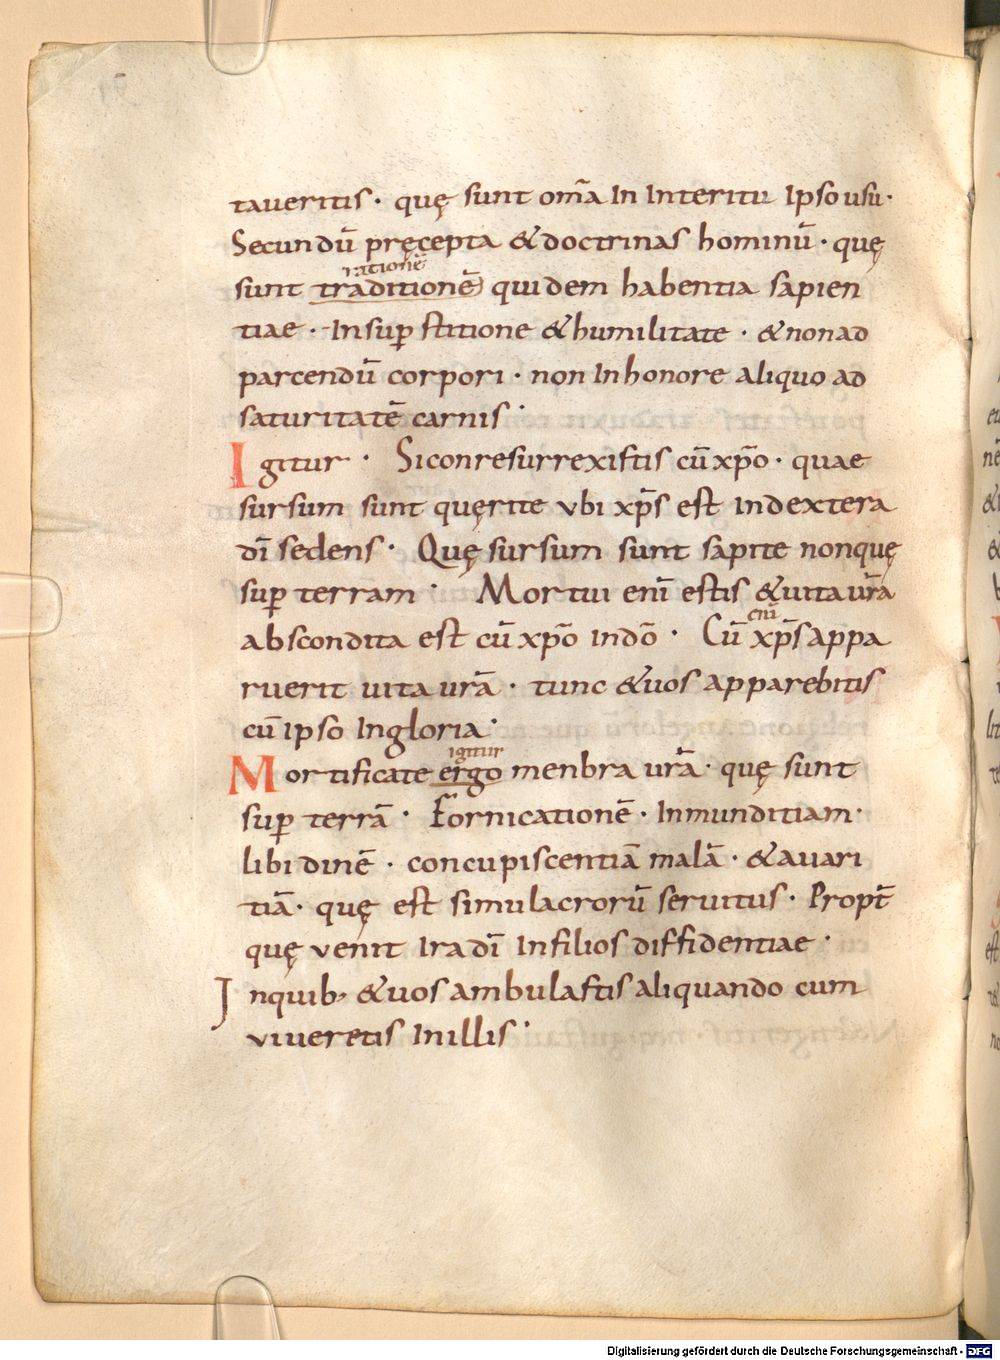 taueritis · quę sunt om̄a In Interitu Ipso usu ·
Secundū pręcepta & doctrinas hominū · quę
rationē
sunt traditionē quidem habentia sapien
tiae · Insup̄stitione & humilitate · & non ad
parcendū corpori · non In honore aliquo ad
saturitatē carnis ·
Igitur · Si conresurrexistis cū xp̄o · quae
sursum sunt quęrite ubi xp̄s est In dextera
dī sedens · Quę sursum sunt sapite non quę
sup̄ terram · Mortui enī estis & uita ur̄a
enī
abscondita est cū xp̄o In dō · Cū xp̄s appa
ruerit uita ur̄a · tunc & uos apparebitis
cū ipso In gloria ·
igitur
Mortificate ergo menbra ur̄a · quę sunt
sup̄ terrā · Fornicationē · Inmunditiam ·
libidinē · concupiscentiā malā · & auari
tiā · quę est simulacrorū seruitus · Propt̄
quę venit Ira dī In filios diffidentiae ·
In quib; & uos ambulastis aliquando cum
viueretis In illis ·
Digitalisierung gefördert durch die Deutsche Forschungsgemeinschaft - DFG